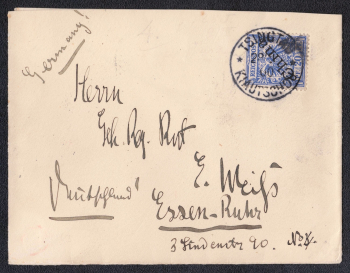 Germany!
TSINGTAU
KIAUTSCHOU
Herrn
Geh. Reg. Rat
E. Weiß
"Deutschland"
Essen-Ruhr
Lindenstr 90.